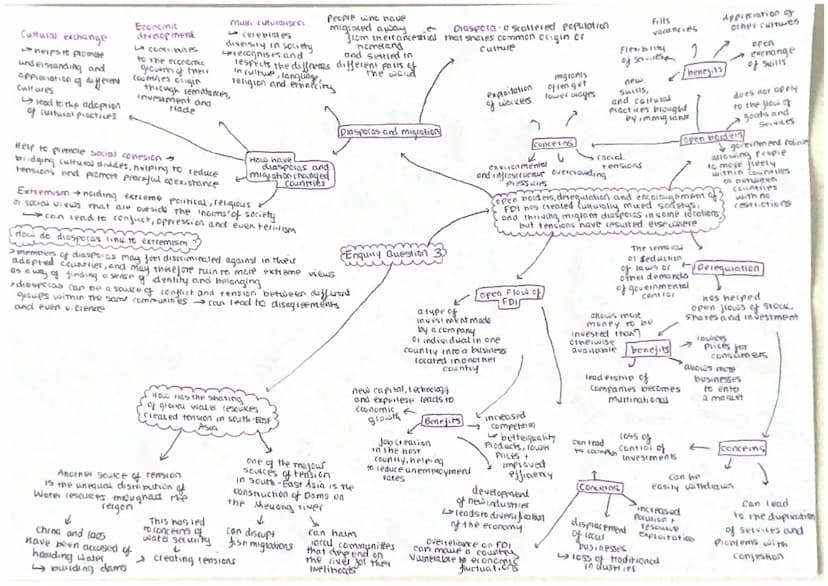 Cultural exchange
↳ helps to promote
understanding and
appreciation of different
cultures
↳ lead to the adoption
of cultural practices
Economic
development
↳ contributes
to the economic
growth of their
countries origin
through remittances,
investment and
trade
Multi culturalism
↳ celebrates
diversity in society
↳ recognises and
respects the differences
in culture, language,
religion and ethnicity
People who have
migrated away
from their ancestral
homeland
and settled in
different parts of
the world
Diaspora - a scattered population
that shares common origin or
culture
Diasporas and migration
How have
diasporas and
migration changed
countries
Help to promote social cohesion →
bridging cultural divides, helping to reduce
tensions and promote peaceful coexistence
Extremism → holding extreme political, religious
or social views that are outside the 'norms' of society
→ can lead to conflict, oppression and even terrorism
How do diasporas link to extremism?
> members of diasporas may feel discriminated against in their
adopted countries, and may therefore turn to more extreme views
as a way of finding a sense of identity and belonging
> diasporas can be a source of conflict and tension between different
groups within the same communities → can lead to disagreements
and even violence
Enquiry Question 3
open borders, deregulation and encouragement of
FDI has created culturally mixed societies,
and thriving migrant diasporas in some locations,
but tensions have resulted elsewhere
Open borders
government policies
allowing people
to move freely
within countries
or between
countries
with no
restrictions
does not apply
to the flow of
goods and
services
benefits
Fills
vacancies
Appreciation of
other cultures
open
exchange
of skills
Flexibility
of services
new
skills,
and cultural
practices brought
by immigrants
concerns
exploitation
of workers
migrants
often get
lower wages
environmental
and infrastructure
pressures
overcrowding
social
tensions
Deregulation
The removal
or reduction
of laws or
other demands
of governmental
control
has helped
open flows of stock,
shares and investment
benefits
allows more
money to be
invested than
otherwise
available
lowers
prices for
consumers
allows more
businesses
to enter
a market
leadership of
companies becomes
multinational
concerns
loss of
control of
investments
can be
easily withdrawn
can lead
to the duplication
of services and
problems with
congestion
Open flow of
FDI
a type of
investment made
by a company
or individual in one
country into a business
located in another
country
Benefits
new capital, technology
and expertise leads to
economic
growth
Job creation
in the host
country, helping
to reduce unemployment
rates
increased
competition
↳ better quality
products, lower
prices +
improved
efficiency
development
of new industries
↳ leads to diversification
of the economy
concerns
can lead
to
displacement
of local
businesses
↳ loss of traditional
industries
increased
pollution +
resource
exploitation
overreliance on FDI
can make a country
vulnerable to economic
fluctuations
How has the sharing
of global water resources
created tension in south-East
Asia
Another source of tension
is the unequal distribution of
water resources throughout the
region
China and Laos
have been accused of
hoarding water
↳ building dams
This has led
to concerns of
water security
↳ creating tensions
one of the major
sources of tension
in south-East Asia is the
construction of Dams on
the Mekong river
can disrupt
fish migrations
can harm
local communities
that depend on
the river for their
livelihoods